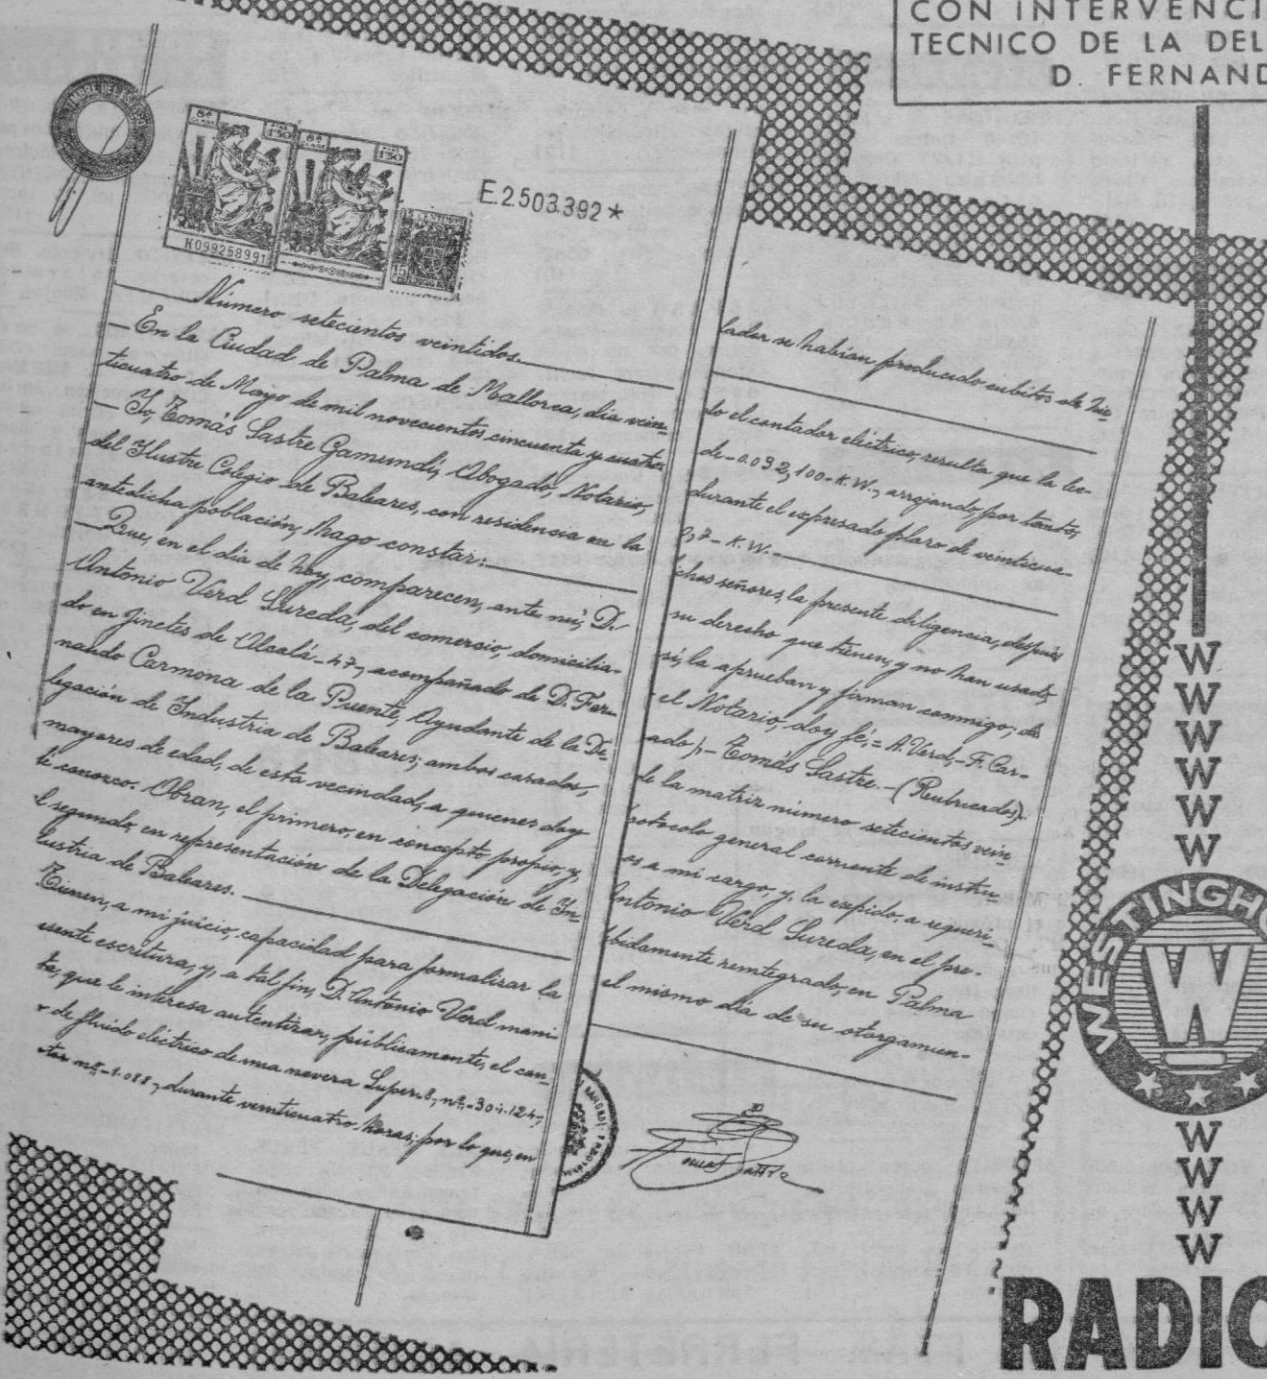 CON INTERVENCI
TECNICO DE LA DEL
D. FERNAND
TIMBRE DEL ESTADO
8ª
150
8ª
150
K09925899
15
E.2503.392*
Número setecientos veintidos.
—En la Ciudad de Palma de Mallorca, dia vein-
ticuatro de Mayo de mil novecientos cincuenta y cuatro.
—Yo, Tomás Sastre Gamundí, Abogado, Notario,
del Ilustre Colegio de Baleares, con residencia en la
antedicha población, hago constar:
—Que, en el dia de hoy, comparecen, ante mi, D.
Antonio Verd Sureda, del comercio, domicilia-
do en Jinetes de Alcalá -47-, acompañado de D. Fer-
nando Carmona de la Puente, Ayudante de la De-
legación de Industria de Baleares; ambos casados,
mayores de edad, de esta vecindad, a quienes doy
fé conozco. Obran, el primero, en concepto propio, y,
l segundo, en representación de la Delegación de In-
dustria de Baleares.
Tienen, a mi juicio, capacidad para formalizar la
esente escritura, y, a tal fin, D. Antonio Verd mani-
ta, que le interesa autentizar, públicamente, el con-
de fluido eléctrico de una nevera Super-8, nº-304.124-,
nº-1.088-, durante veinticuatro horas; por lo que, en
lador se habían producido cubitos de hie-
do el contador eléctrico, resulta que la lec-
de -0.092,100- K.W., arrojando por tanto,
durante el expresado plazo de veinticua-
0,7- K.W.-
ichos señores, la presente diligencia, después
su derecho que tienen, y no han usado,
sí, la aprueban y firman conmigo; de
el Notario, doy fé.= A. Verd.- F. Car-
ado).- Tomás Sastre.- (Rubricados).
de la matriz número setecientos vein
rotocolo general corriente de instru-
os a mi cargo, y, la expido, a requeri-
Antonio Verd Sureda, en el pre-
bidamente reintegrado, en Palma
el mismo día de su otorgamien-
W
W
W
W
W
W
WESTINGHO
W
W
W
W
W
RADIO